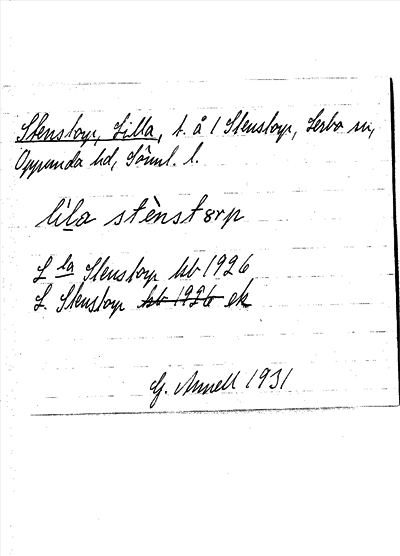 Stenstorp, Lilla, t. å 1 Stenstorp, Lerbo sn,
Oppunda hd, Sörml. l.
lìla stènstɵrp
L la Stenstorp kb 1926
L. Stenstorp kb 1926 ek
G. Annell 1931